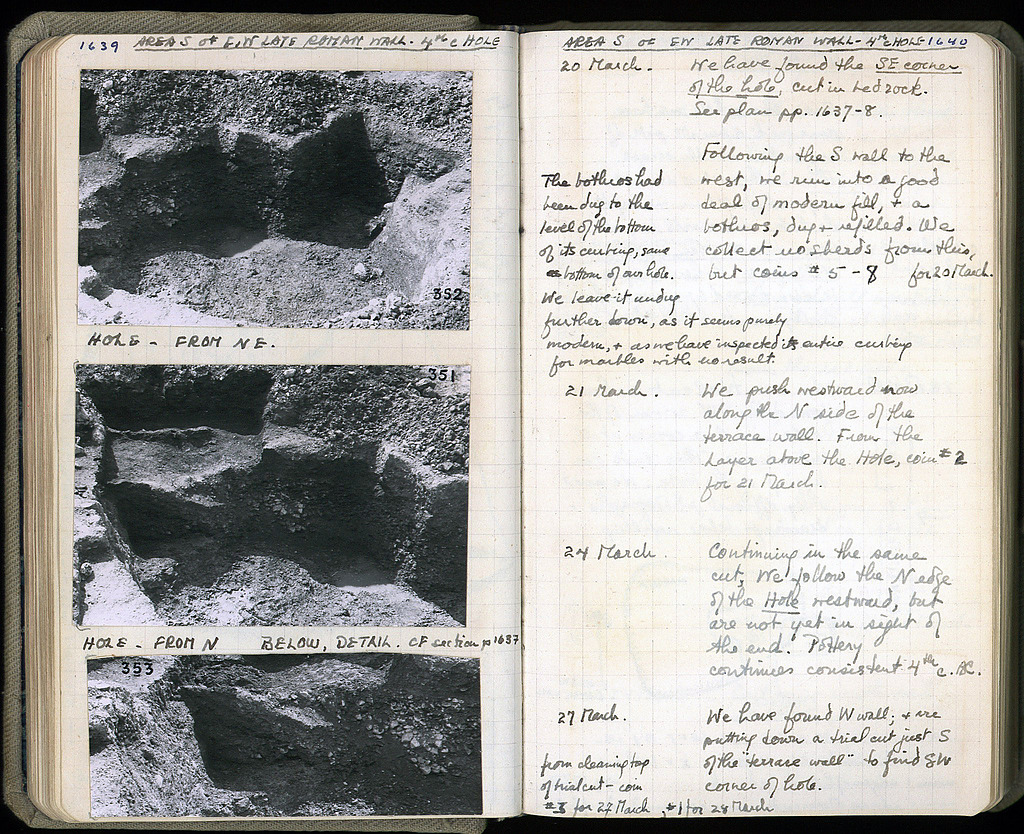 1639 AREA S of E.W LATE ROMAN WALL - 4th c HOLE
352
HOLE - FROM NE.
351
HOLE - FROM N BELOW, DETAIL. CF section p 1637
353
AREA S of EW LATE ROMAN WALL - 4th c HOLE - 1640
20 March. We have found the SE corner
of the hole, cut in bedrock.
See plan pp. 1637-8.
Following the S wall to the
west, we run into a good
deal of modern fill, + a
bothros, dug + refilled. We
collect no sherds from this,
but coins # 5 - 8 for 20 March.
The bothros had
been dug to the
level of the bottom
of its curbing, same
as bottom of our hole.
We leave it undug
further down, as it seems purely
modern, + as we have inspected its entire curbing
for marbles with no result.
21 March. We push westward now
along the N side of the
terrace wall. From the
layer above the Hole, coin # 2
for 21 March.
24 March. Continuing in the same
cut, we follow the N edge
of the Hole westward, but
are not yet in sight of
the end. Pottery
continues consistent 4th c. BC.
27 March. We have found W wall; + are
putting down a trial cut just S
of the "terrace wall" to find SW
corner of hole.
from cleaning top
of trial cut - coin
#3 for 27 March, #1 for 28 March